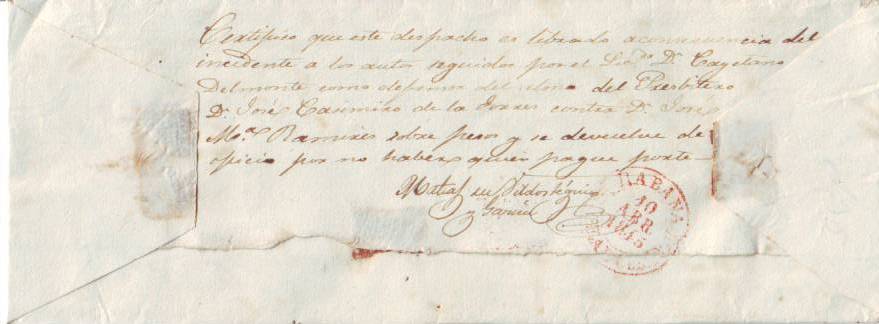 Certifico que este despacho es librado a consecuencia del
incidente a los autos seguidos por el Ldo. Dn. Cayetano
Delmonte como defensor del del Presbitero
Dn. José Casimiro de la Torres contra Dn. José
Ma. Ramires sobre pesos y se devuelve de
oficio por no haber quien pague porte
y Garcia
HABANA
10
ABR
1845